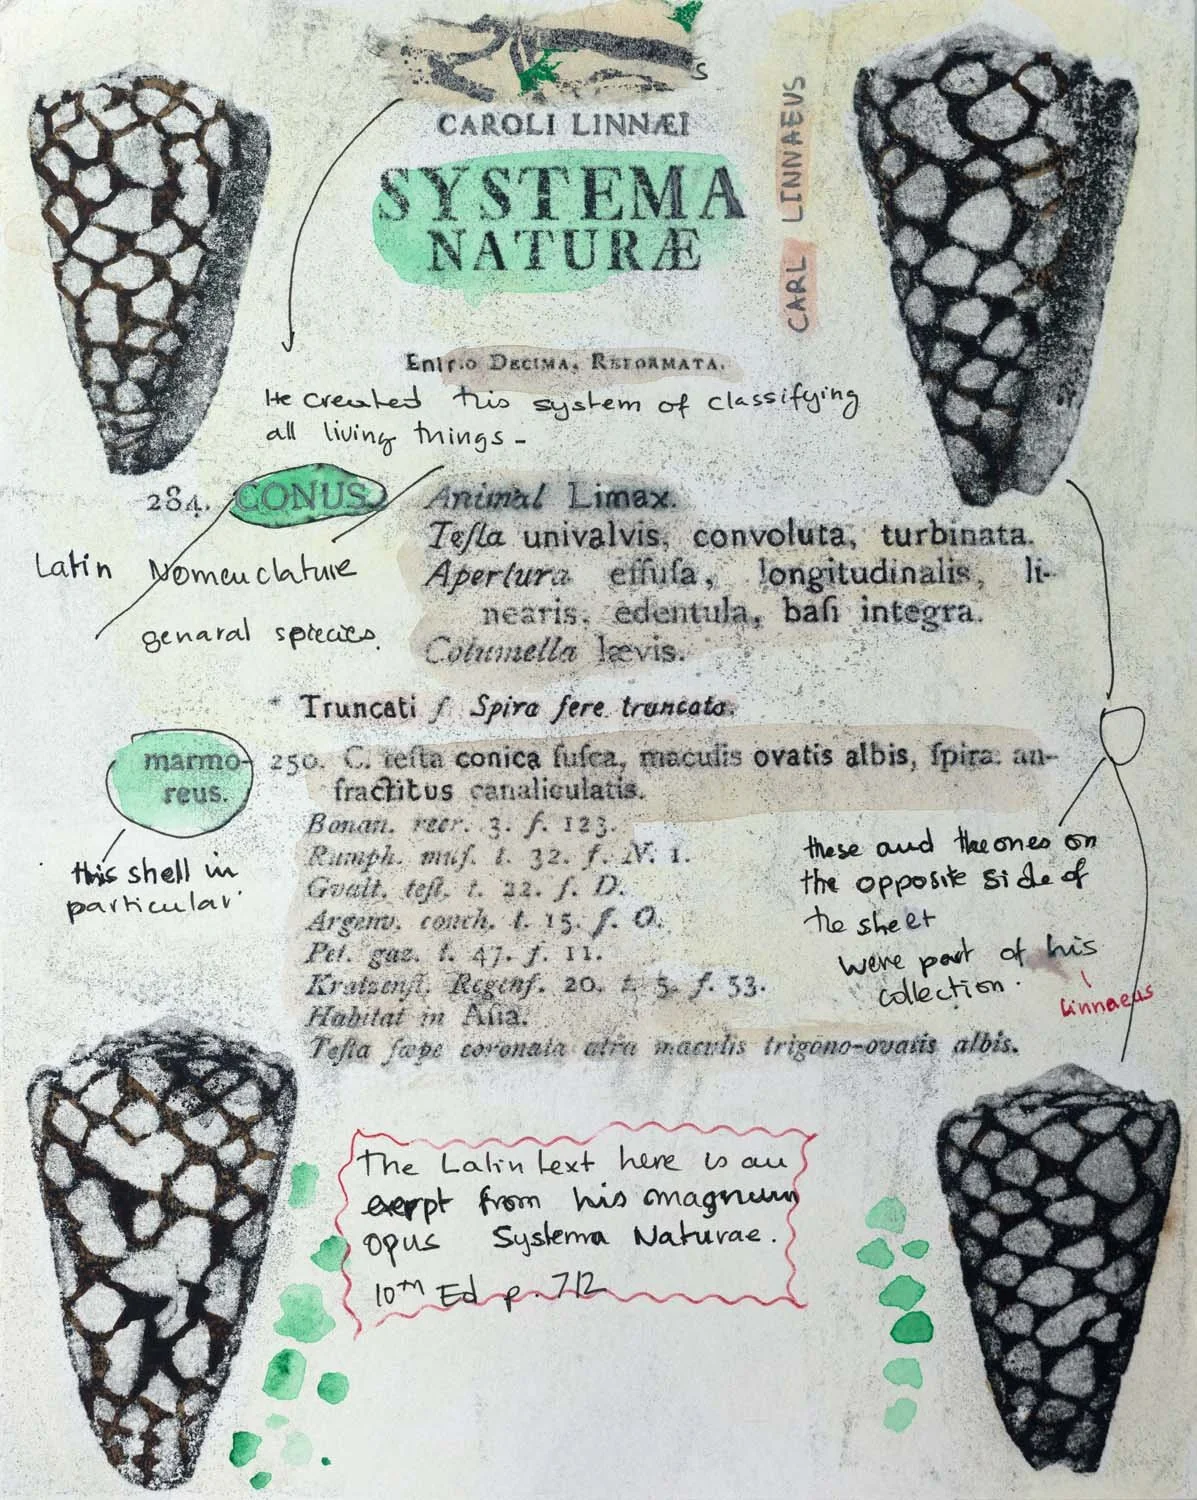 s
CAROLI LINNÆI
SYSTEMA
NATURÆ
CARL LINNAEUS
DECIMA, REFORMATA.
He created this system of classifying
all living things -
284. CONUS. Animal Limax.
Teſta univalvis, convoluta, turbinata.
Apertura effuſa, longitudinalis, li-
nearis, edentula, baſi integra.
Columella lævis.
Latin Nomenclature
genaral species.
* Truncati ſ Spira fere truncata.
marmo- 250. C. teſta conica fuſca, maculis ovatis albis, ſpira: an-
reus. fractitus canaliculatis.
Bonan. recr. 3. f. 123.
Rumph. muſ. t. 32. f. N. 1.
Gvalt. teſt. t. 22. f. D.
Argenv. conch. t. 15. f. O.
Pet. gaz. t. 47. f. 11.
Kratzenſt. Regenf. 20. t. 5. f. 53.
Habitat in Aſia.
Teſta ſæpe coronata atra maculis trigono-ovatis albis.
this shell in
particular
these and the ones on
the opposite side of
the sheet
were part of his
collection.
linnaeus
The Latin text here is an
exerpt from his magnum
opus Systema Naturae.
10TH Ed p. 712